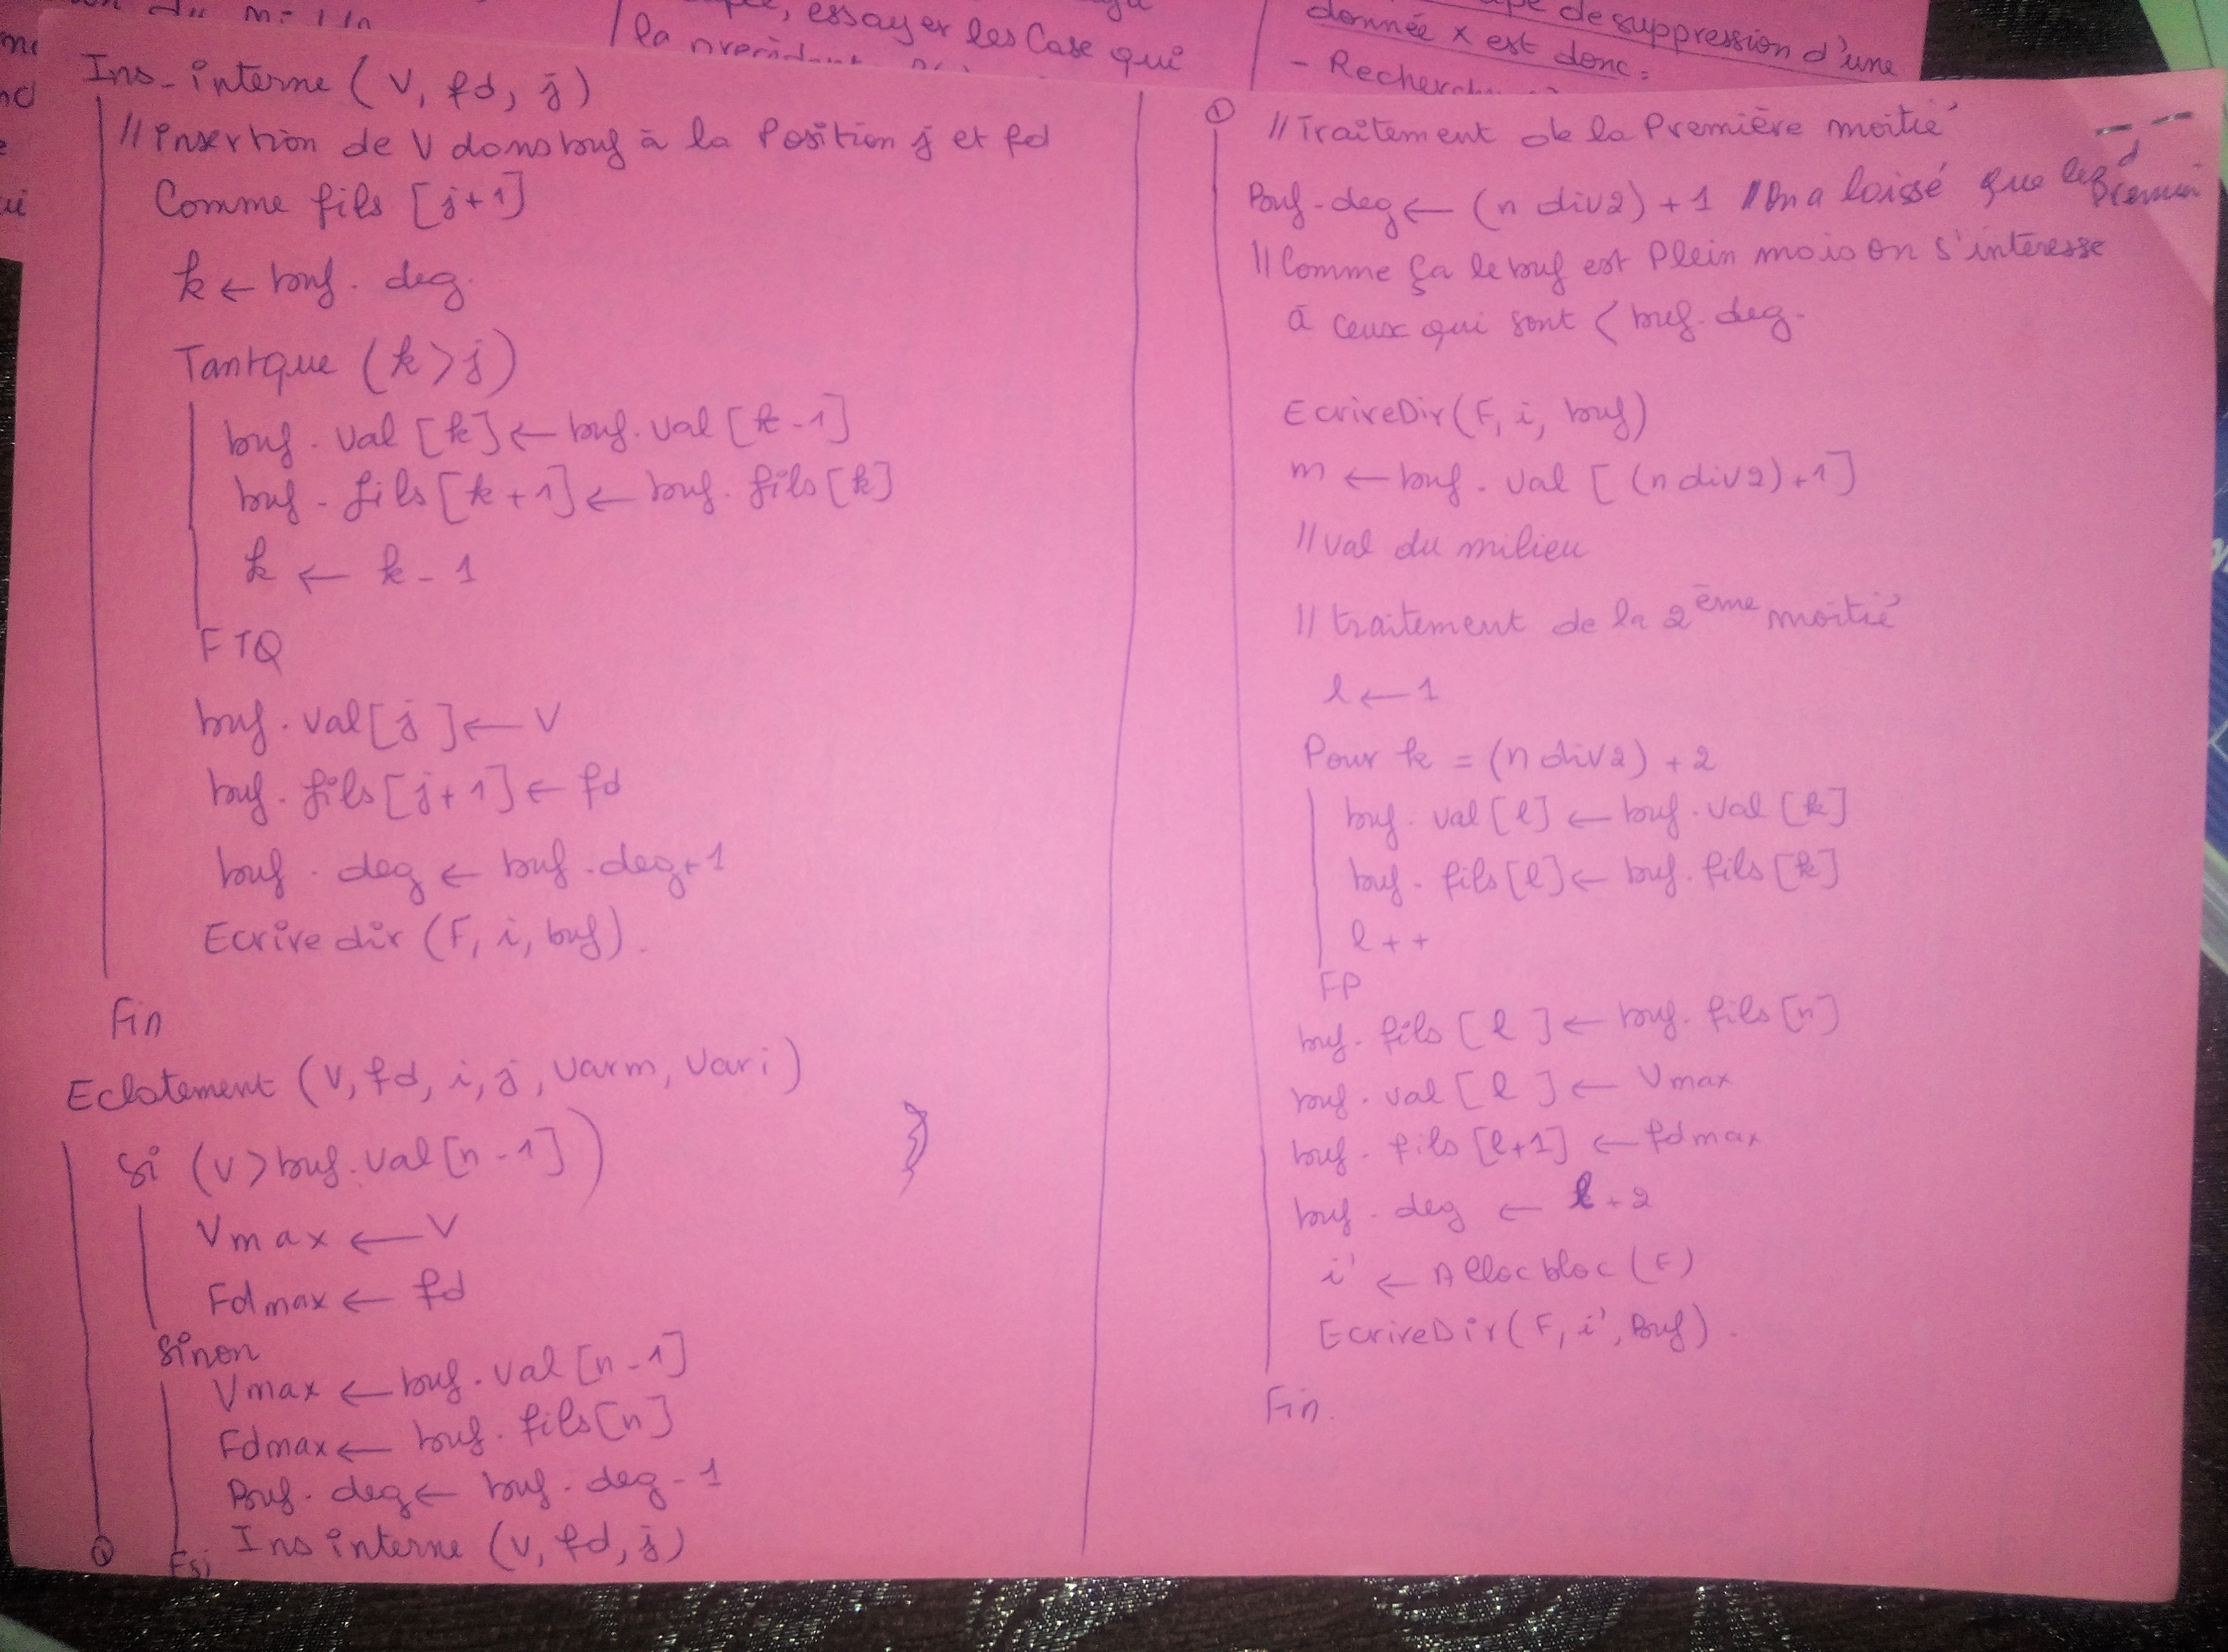 essayer les Case qui
la
donnée x est donc :
de suppression d'une
- Recherche
Ins-interne (V, fd, j)
// insertion de V dans buf à la Position j et fd
Comme fils [j+1]
k ← buf. deg.
Tantque (k > j)
buf. val [k] ← buf. val [k-1]
buf. fils [k+1] ← buf. fils [k]
k ← k-1
FTQ
buf. val [j] ← V
buf. fils [j+1] ← fd
buf. deg ← buf. deg+1
Ecrire dir (F, i, buf).
Fin
Eclatement (V, fd, i, j, Varm, Vari)
Si (V > buf. val [n-1])
Vmax ← V
Fdmax ← fd
Sinon
Vmax ← buf. val [n-1]
Fdmax ← buf. fils [n]
Buf. deg ← buf. deg-1
Ins interne (V, fd, j)
Fsi
①
①
// Traitement de la Première moitié
Buf-deg ← (n div2) + 1 // On a laissé que les d premier
// Comme ça le buf est Plein mais on s'intéresse
à ceux qui sont < buf. deg.
EcrireDir (F, i, buf)
m ← buf. val [(n div2)+1]
// val du milieu
// traitement de la 2ème moitié
l ← 1
Pour k = (n div2) + 2
buf. val [l] ← buf. val [k]
buf. fils [l] ← buf. fils [k]
l++
FP
buf. fils [l] ← buf. fils [n]
buf. val [l] ← Vmax
buf. fils [l+1] ← fdmax
buf. deg ← l+2
i' ← Allocbloc (F)
EcrireDir (F, i', Buf).
Fin.